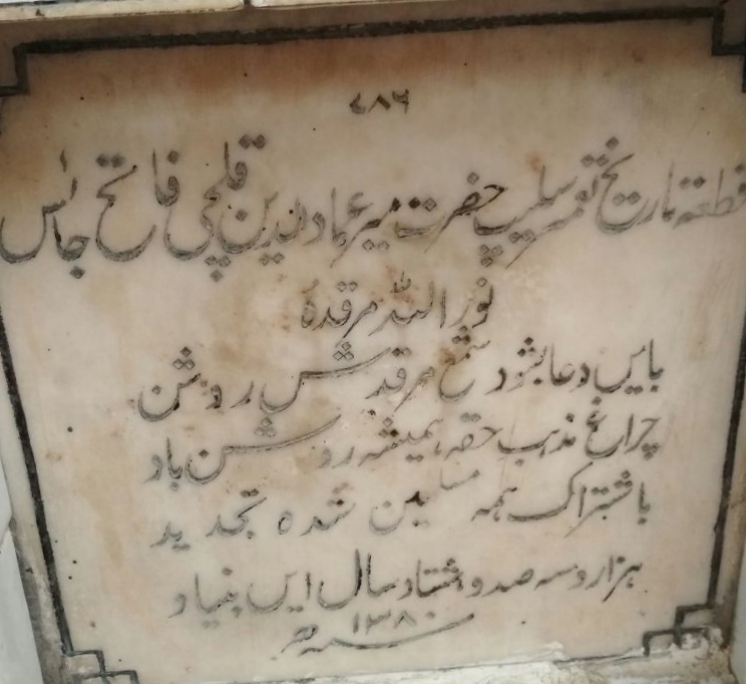 ۷۸۶
قطعہ تاریخ تعمیر سلیپ حضرت میر عمادالدین قلچی فاتح جائس
نور اللہ مرقدہ
بایں دعا بشود شمع مرقدش روشن
چراغ مذہب حقہ ہمیشہ روشن باد
باشتراک ہمہ مسلمین شدہ تجدید
ہزار و سہ صد و ہشتاد سال ایں بنیاد
سنہ ۱۳۸۰ ھ